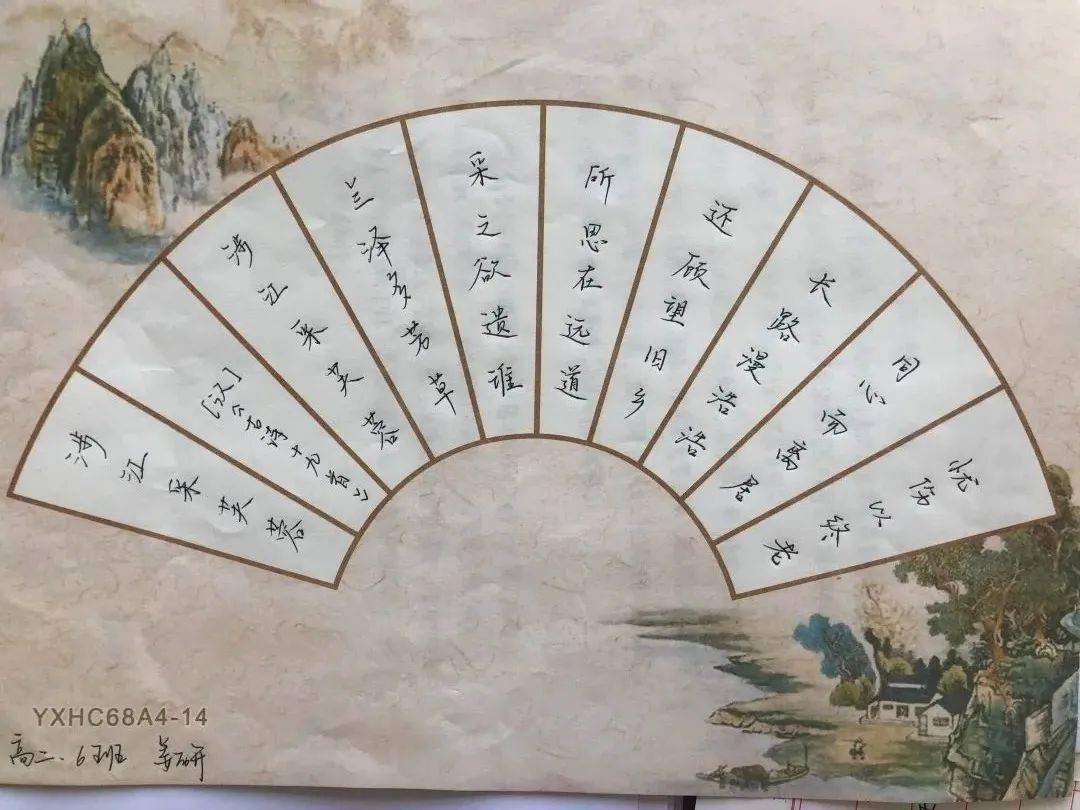 涉江采芙蓉
[汉]《古诗十九首》
涉江采芙蓉
兰泽多芳草
采之欲遗谁
所思在远道
还顾望旧乡
长路漫浩浩
同心而离居
忧伤以终老
YXHC68A4-14
高二.6班 姜研